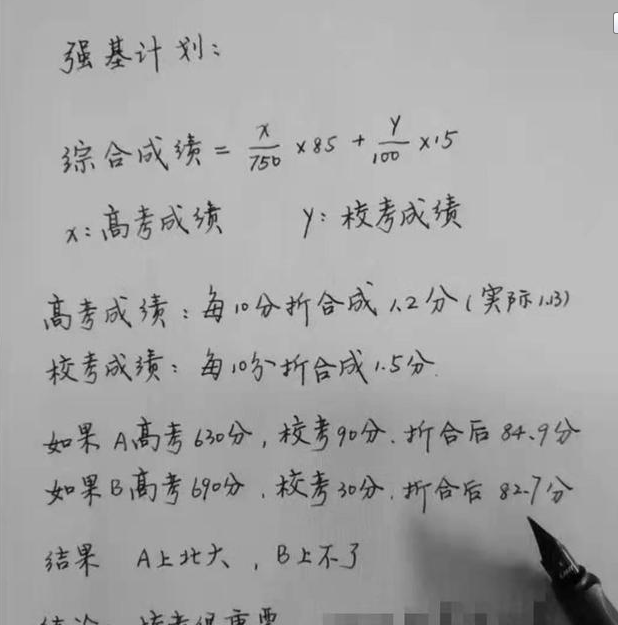 强基计划:
综合成绩 = x/750 ×85 + y/100 ×15
x: 高考成绩 y: 校考成绩
高考成绩: 每10分折合成1.2分(实际1.13)
校考成绩: 每10分折合成1.5分.
如果A高考630分, 校考90分. 折合后84.9分
如果B高考690分, 校考30分. 折合后82.7分
结果 A上北大, B上不了